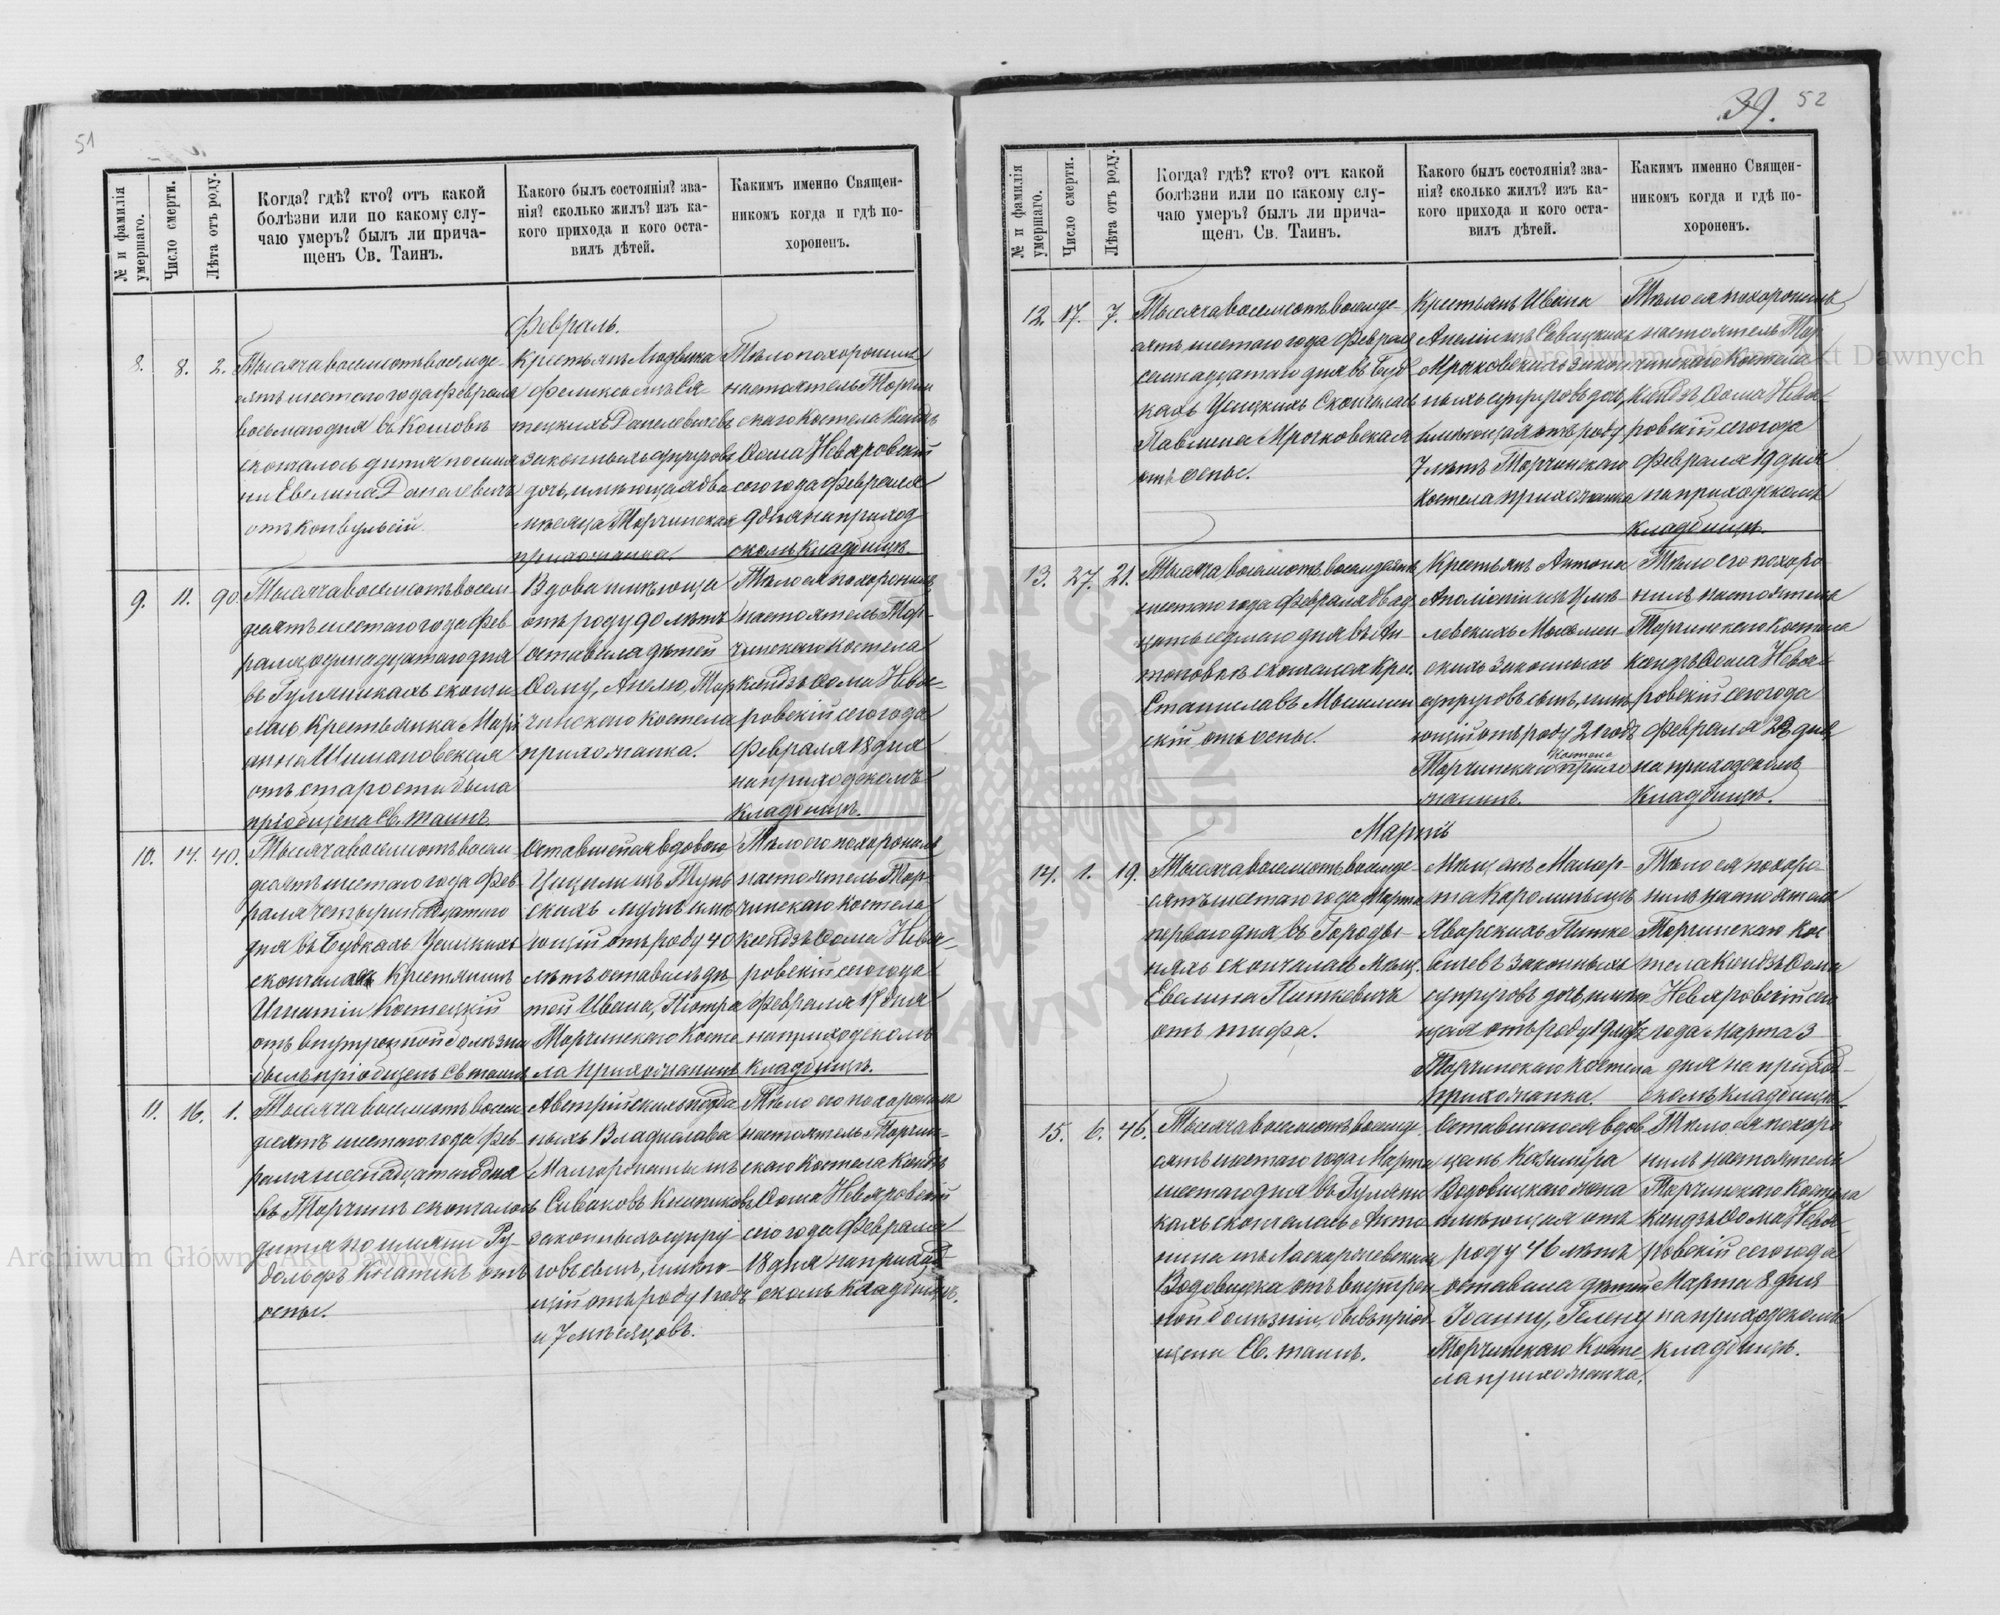 51
№ и фамилія умершаго.
Число смерти.
Лѣта отъ роду.
Когда? гдѣ? кто? отъ какой
болѣзни или по какому слу-
чаю умеръ? былъ ли прича-
щенъ Св. Таинъ.
Какого былъ состоянія? зва-
нія? сколько жилъ? изъ ка-
кого прихода и кого оста-
вилъ дѣтей.
Какимъ именно Священ-
никомъ когда и гдѣ по-
хороненъ.
Февраль.
8. 8. 2.
Тысяча восемьсотъ восемде-
сятъ шестого года Февраля
восьмаго дня въ
скончалось дитя по имя
ни Евелина Данелевичъ
отъ конвульсій.
Крестьянъ Людвика
Феликсы изъ
Данелевичовъ
законныхъ супруговъ
дочь, имѣющая два
мѣсяца Торчинская
прихожанка.
Тѣло похоронилъ
настоятель Торчин
скаго Костела Ксендзъ
Ѳома Невяровскій
сего года Февраля
9 дня на приход
скомъ кладбищѣ.
9. 11. 90.
Тысяча восемьсотъ восем
десятъ шестаго года Фев
раля, одинадцатаго дня
въ Гулянникахъ сконча
лась Крестьянка Марі
анна Шимановская
отъ старости была
пріобщена Св. таинъ
Вдова имѣюща
отъ роду 90 лѣтъ
оставила дѣтей
Ѳому, Анелю, Тор
чинскаго костела
прихожанка.
Тѣло ея похоронилъ
настоятель Тор-
чинскаго костела
ксендзъ Ѳома Невя-
ровскій сего года
Февраля 18 дня
на приходскомъ
кладбищѣ.
10. 14. 40.
Тысяча восемьсотъ восем
десятъ шестаго года Фев-
раля четырнадцатаго
дня въ Будкахъ Усицкихъ
скончался Крестянинъ
Игнатій Костецкій
отъ внутренной болѣзни
былъ пріобщенъ Св таинъ
Оставшейся вдовою
изъ
скихъ мужъ имѣ
ющій отъ роду 40
лѣтъ оставилъ дѣ
тей Ивана, Петра
Торчинскаго Косте
ла прихожанинъ
Тѣло его похоронилъ
настоятель Тор-
чинскаго костела
ксендзъ Ѳома Невя-
ровскій сего года
Февраля 17 дня
на приходскомъ
кладбищѣ.
11. 16. 1.
Тысяча восемьсотъ восем
десятъ шестаго года Фев
раля шеснадцатаго дня
въ Торчинѣ скончалось
дитя по имяни Ру-
дольфъ отъ
оспы.
Австрійскихъ подда
ныхъ Владислава
изъ
законныхъ супру
говъ сынъ, имею-
щій отъ роду 1 годъ
и 7 мѣсяцовъ.
Тѣло его похоронилъ
настоятель Торчин-
скаго Костела Ксендзъ
Ѳома Невяровскій
сего года Февраля
18 дня на приход
скомъ кладбищѣ.
39. 52
№ и фамилія умершаго.
Число смерти.
Лѣта отъ роду.
Когда? гдѣ? кто? отъ какой
болѣзни или по какому слу-
чаю умеръ? былъ ли прича-
щенъ Св. Таинъ.
Какого былъ состоянія? зва-
нія? сколько жилъ? изъ ка-
кого прихода и кого оста-
вилъ дѣтей.
Какимъ именно Священ-
никомъ когда и гдѣ по-
хороненъ.
12. 17. 7.
Тысяча восемьсотъ восемде-
сятъ шестаго года Феврал
семнадцатаго дня въ Буд
кахъ Усицкихъ скончалась
Павлина Мрочковская
отъ оспы.
Крестьянъ Ивана
Анеліи изъ Савицкихъ
Мрочковскихъ закон
ныхъ супруговъ дочь,
имѣющая отъ роду
7 лѣтъ Торчинскаго
костела прихожанка
Тѣло ея похоронилъ
настоятель Тор
чинскаго Костела
ксендзъ Ѳома Невя-
ровскій сего года
Февраля 19 дня
на приходскомъ
кладбищѣ.
13. 27. 21.
Тысяча восемьсотъ восемдесятъ
шестаго года Февраля двад
цать седмаго дня въ Ан-
тоновкѣ скончался Крес.
Станиславъ
скій отъ оспы.
Крестьянъ Антона
изъ
левскихъ
скихъ законныхъ
супруговъ сынъ, имѣ
ющій отъ роду 21 годъ
Торчинскаго костела прихо
жанинъ.
Тѣло его похоро
нилъ настоятель
Торчинскаго Костела
ксендзъ Ѳома Невя-
ровскій сего года
Февраля 28 дня
на приходскомъ
кладбищѣ.
Мартъ
14. 1. 19.
Тысяча восемьсотъ восемде
сятъ шестаго года Марта
перваго дня въ Городы-
няхъ скончалась Мѣщ.
Евелина Питкевичъ
отъ тифа.
Мѣщанъ
Каролины изъ
Яворскихъ Питке
вичевъ законныхъ
супруговъ дочь, имѣю
щая отъ роду 19 лѣтъ
Торчинскаго костела
прихожанка.
Тѣло ея похоро-
нилъ настоятель
Торчинскаго Кос
тела Ксендзъ Ѳома
Невяровскій сего
года Марта 3
дня на приход-
скомъ кладбищѣ
15. 6. 46.
Тысяча восемьсотъ восемде
сятъ шестаго года Марта
шестаго дня въ Гулянни
кахъ скончалась Анто
нина изъ
Водовицка отъ внутрен
ной болѣзни, была пріоб
щена Св. таинъ.
Оставшагося вдов
цемъ Казиміра
Водовицкаго жена
имѣющая отъ
роду 46 лѣтъ
оставила дѣтей
Іоанну, Гелену
Торчинскаго Косте-
ла прихожанка.
Тѣло ея похоро
нилъ настоятель
Торчинскаго Костела
ксендзъ Ѳома Невя-
ровскій сего года
Марта 8 дня
на приходскомъ
кладбищѣ.
Archiwum Główne Akt Dawnych
Archiwum Główne Akt Dawnych